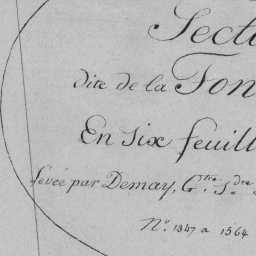 Secti
dite de la Fon
En Six feuill
levée par Demay, G.tre S.dre
N.º 1347 a 1564